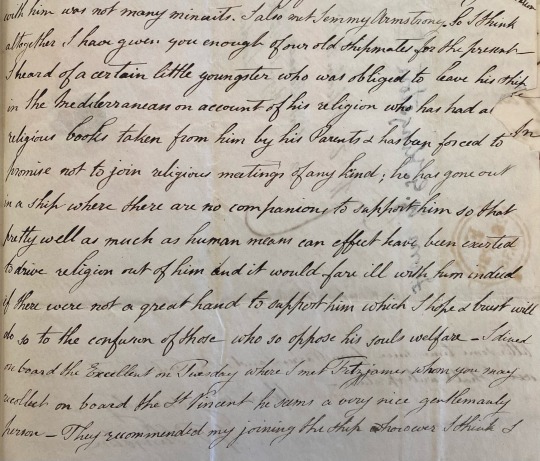 with him was not many minuits. I also met Jimmy Armstrong. So I think
altogether I have given you enough of our old shipmates for the present –
I heard of a certain little youngster who was obliged to leave his ship
in the Mediterranean on account of his religion who has had al
religious books taken from him by his Parents & has been forced to
promise not to join religious meatings of any kind; he has gone out
in a ship where there are no companions to support him so that
pretty well as much as human means can effect have been exerted
to drive religion out of him and it would fare ill with him indeed
if there were not a great hand to support him which I hope & trust will
do so to the confusion of those who so oppose his souls welfare – I dined
on board the Excellent on Tuesday where I met Fitzjames whom you may
recollect on board the St Vincent he seems a very nice gentlemanly
person – They recommended my joining the ship however I think I
In